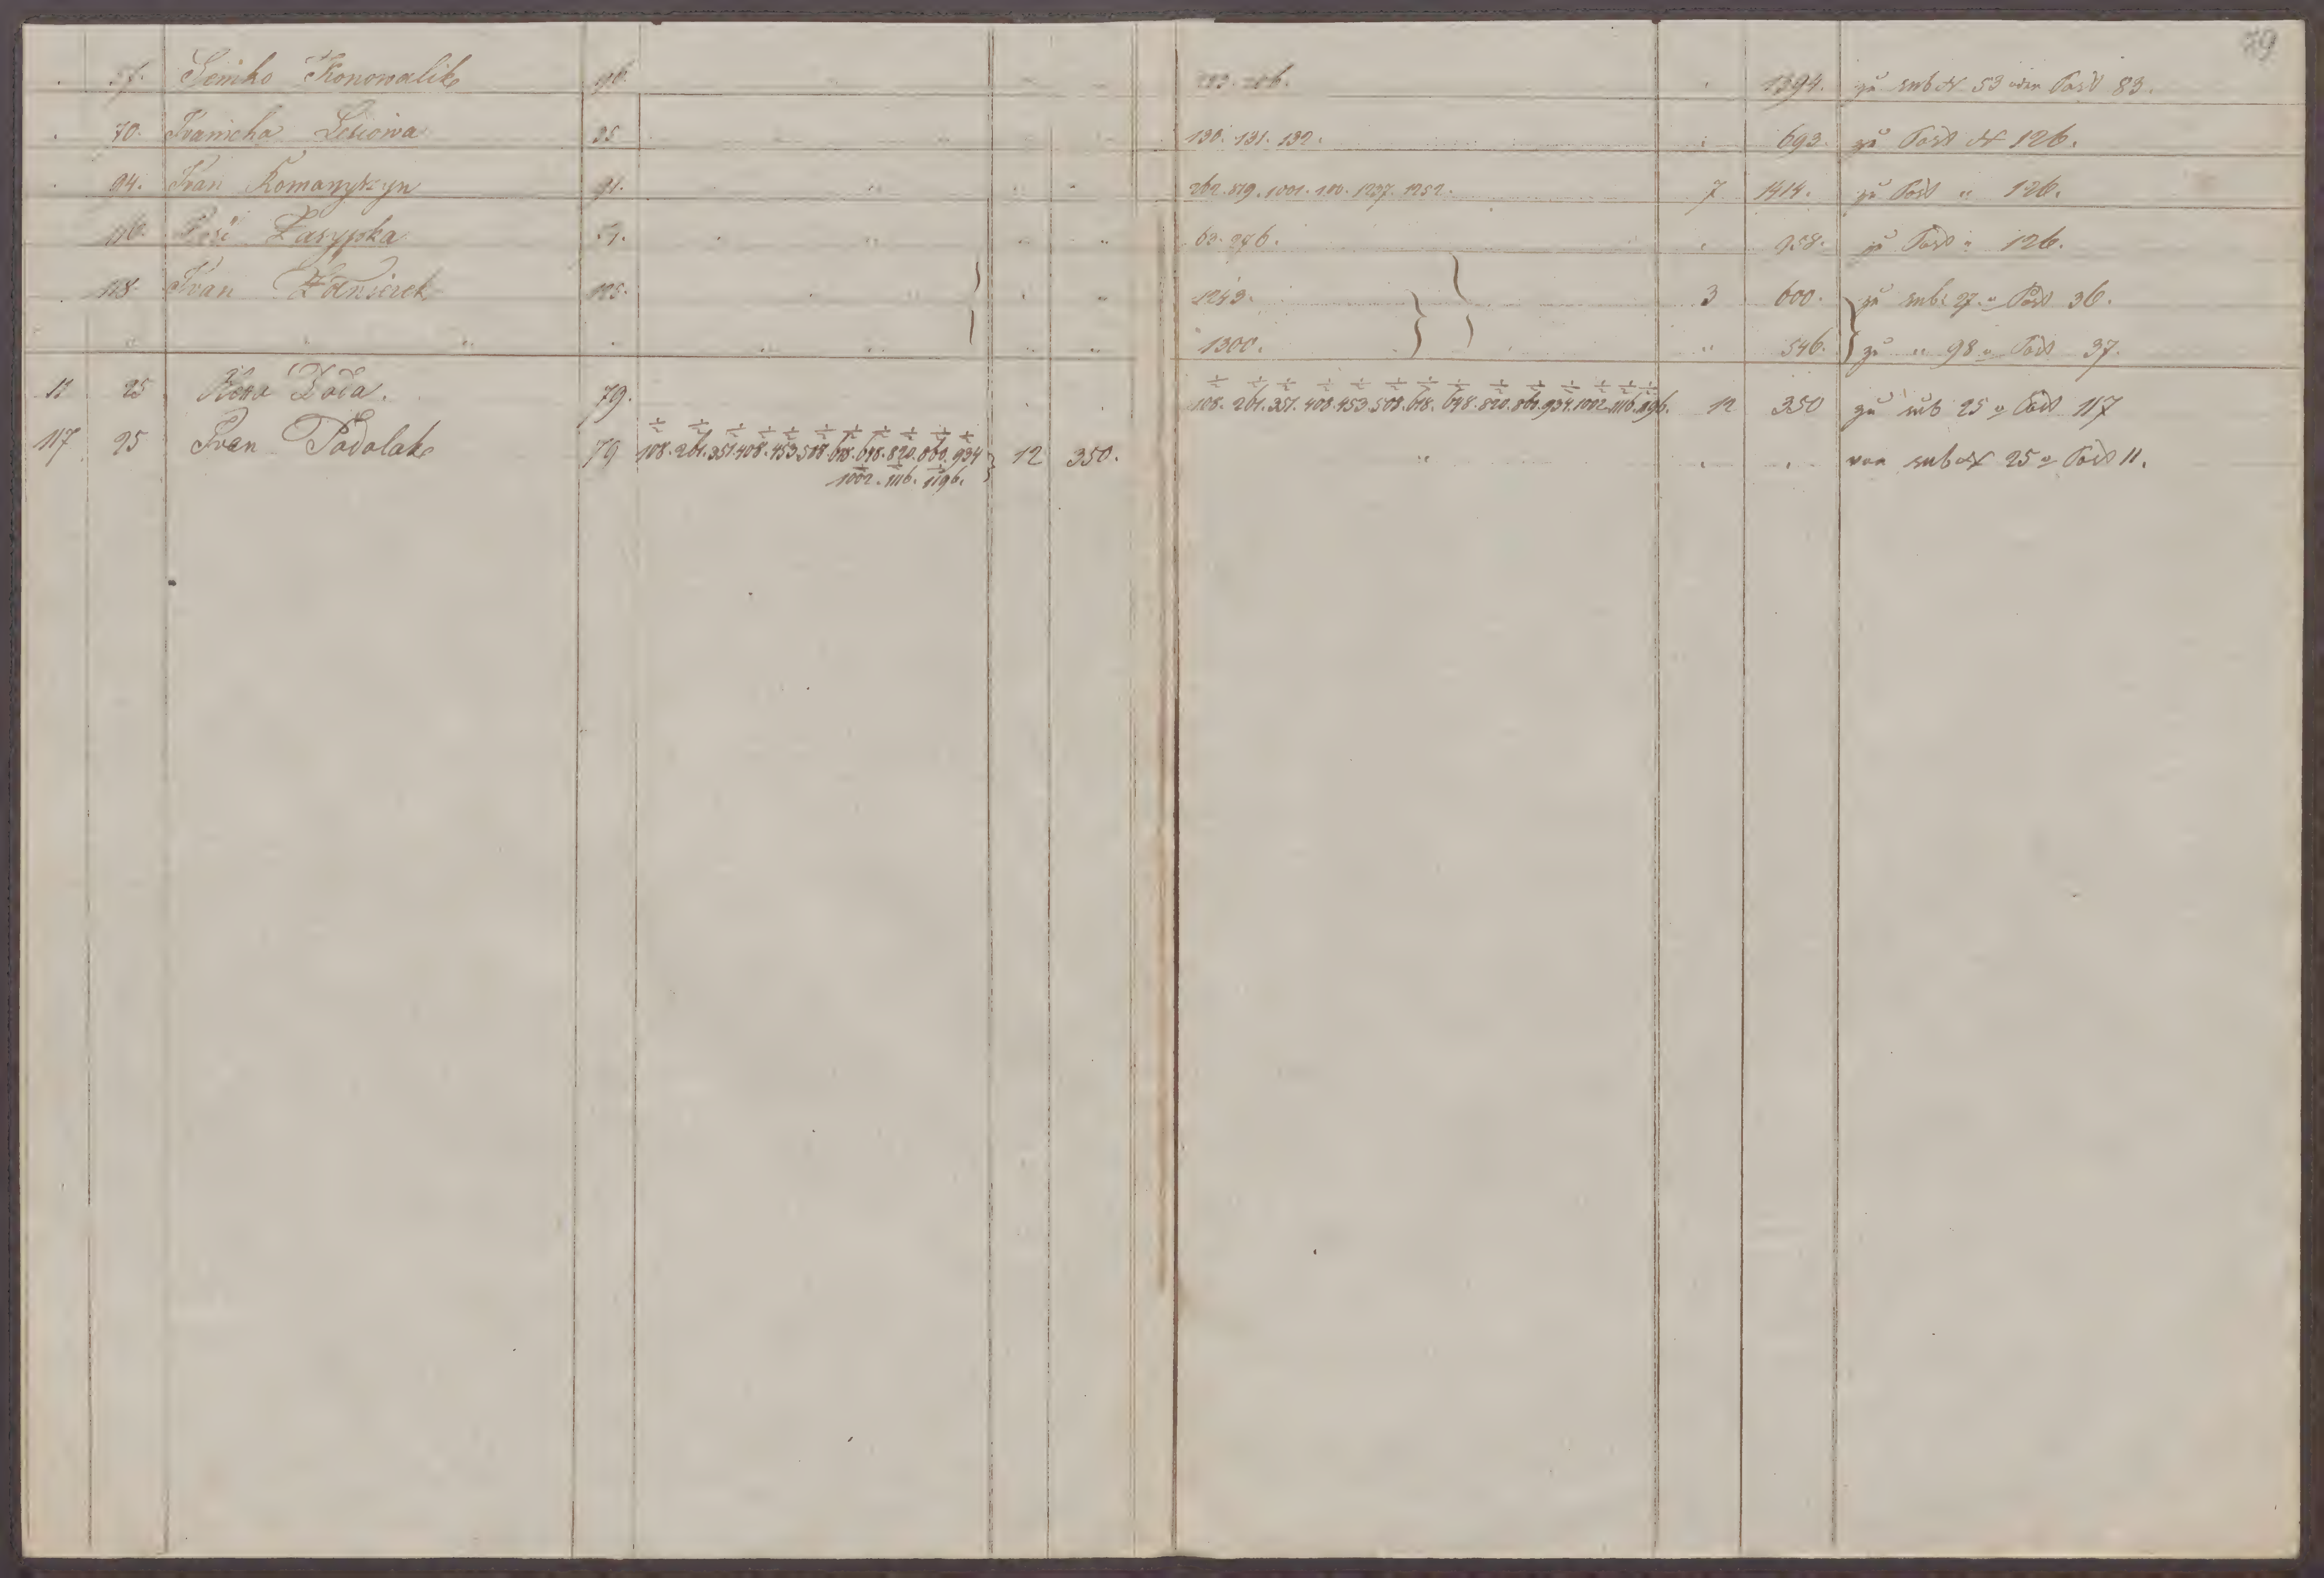 79
57. Semko Konowalik 96. 1394. zu sub N 53 oder Post 83.
70. Iwanicha Lesiowa 35 130. 131. 132. 693. zu Post N 126.
94. Ivan Romanyszyn 91. " " " " 262. 819. 1001. 1237. 1252. 7 1414. zu Post " 126.
116. Zasypka " " " 62. 276. 958. zu Post " 126.
118. Ivan 125. " " 1249. 3 600. zu sub 27 " Post 36.
" " " " " " " 1300. " 546. zu " 98 " Post 37.
11 25 79. 108. 261. 351. 408. 453. 508. 618. 648. 820. 860. 934. 1002. 1116. 1196. 12 350 zu sub 25 " Post 117
117 25 Ivan Podolak 79 108. 261. 351. 408. 453. 508. 618. 648. 820. 860. 934 12 350. " von sub N 25 " Post 11.
1002. 1116. 1196.